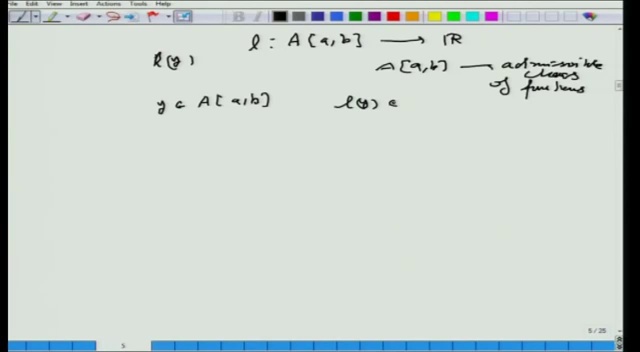 File Edit View Insert Actions Tools Help
l : A[a,b] ⟶ ℝ
l(y)
A[a,b] — admissible class of functions
y ∈ A[a,b] l(y) ∈
5 / 25
5